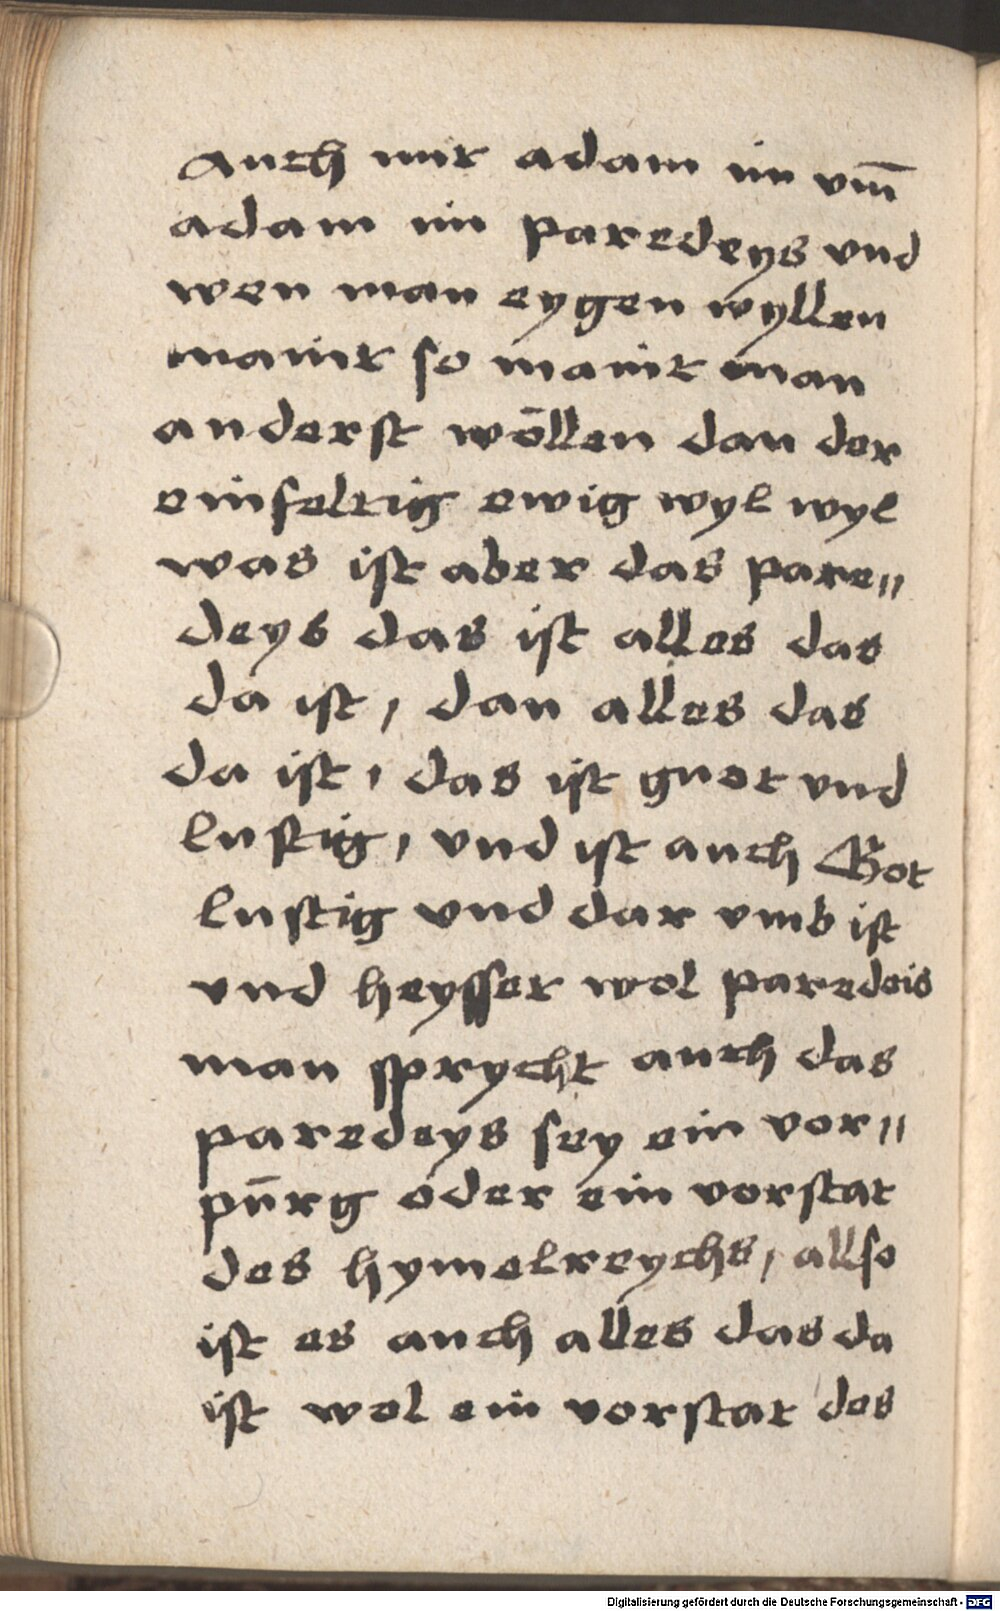 Auch mit adam im vm̄
adam im paredeys vnd
wen man eygen wyllen
maint so maint man
anderst wo̅llen dan der
einfeltig ewig wyl wyl
was ist aber das pare„
deys das ist alles das
da ist, dan alles das
da ist, das ist guot vnd
lustig, vnd ist auch Got
lustig vnd dar vmb ist
vnd heysset wol paredeis
man sprycht auch das
paredeys sey ein vor„
pu̅rg oder ein vorstat
des hymelreychs, allso
ist es auch alles das da
ist wol ein vorstat des
Digitalisierung gefördert durch die Deutsche Forschungsgemeinschaft - DFG